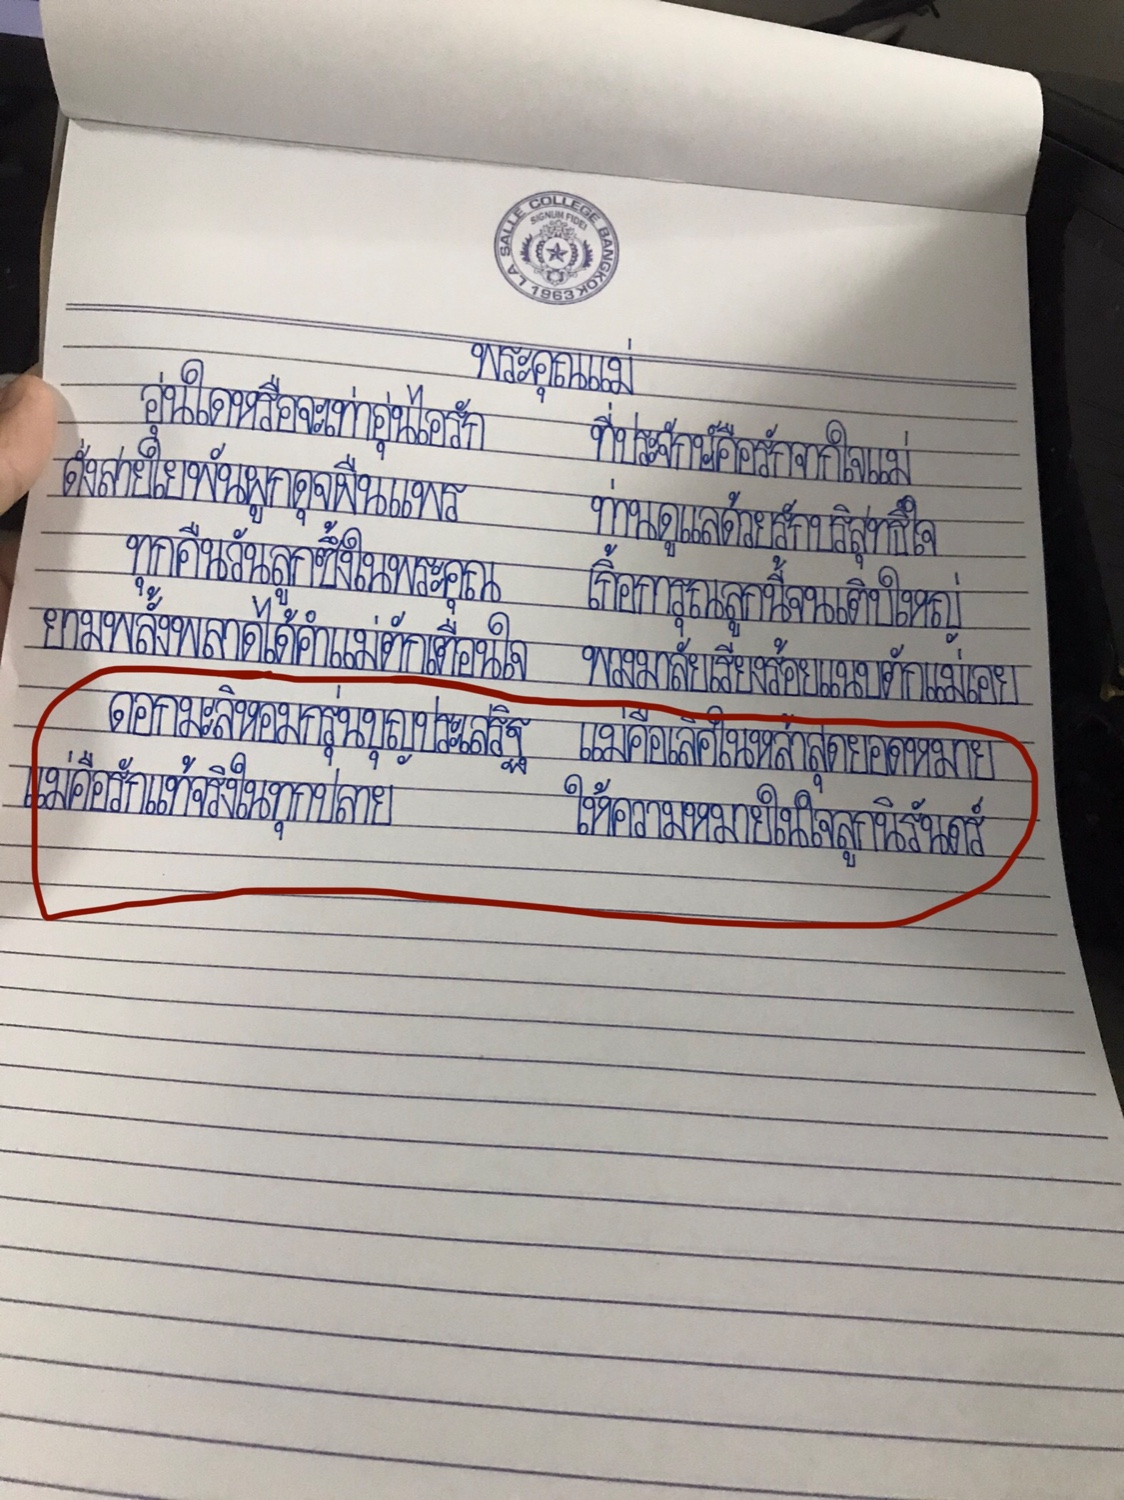 LA SALLE COLLEGE BANGKOK
SIGNUM FIDEI
1963
พระคุณแม่
อุ่นใดหรือจะเท่าอุ่นไอรัก ที่ประจักษ์คือรักจากใจแม่
ดั่งสายใยพันผูกดุจผืนแพร ท่านดูแลด้วยรักบริสุทธิ์ใจ
ทุกคืนวันลูกซึ้งในพระคุณ เกื้อการุณลูกนี้จนเติบใหญ่
ยามพลั้งพลาดได้คำแม่ตักเตือนใจ พวงมาลัยเรียงร้อยแนบตักแม่เอย
ดอกมะลิหอมกรุ่นบุญประเสริฐ แม่คือเลิศในหล้าสุดยอดหมาย
แม่คือรักแท้จริงในทุกปลาย ให้ความหมายในใจลูกนิรันดร์